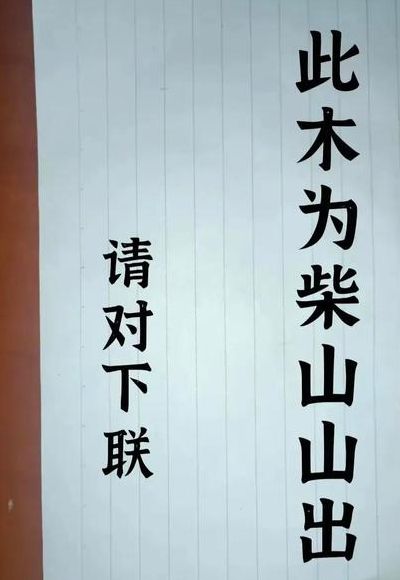 此木为柴山山出
请对下联